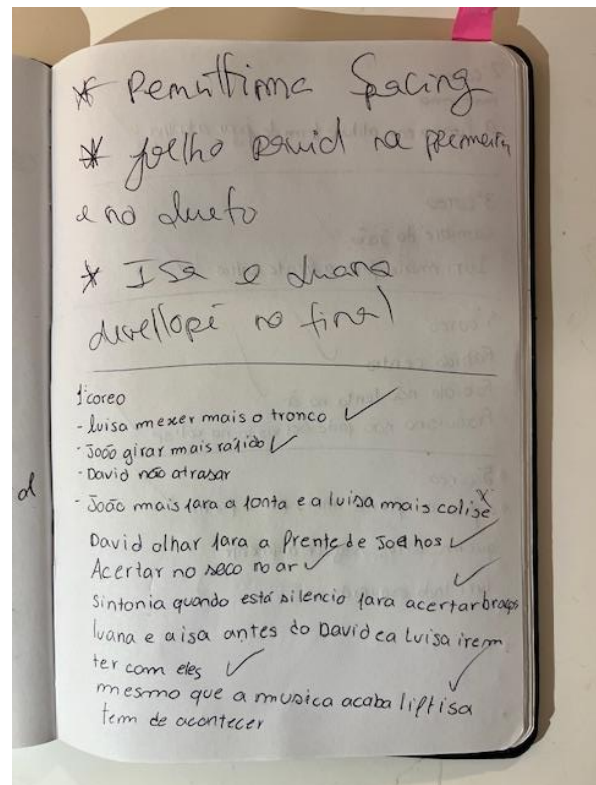 * Penultima Spacing
* joelho David na primeira
e no dueto
* Isa e Luana
devellopé no final
1ª coreo
- luisa mexer mais o tronco ✓
- João girar mais rápido ✓
- David não atrasar
- João mais para a ponta e a luisa mais colise x
David olhar para a frente de Joelhos ✓
Acertar no seco no ar ✓
Sintonia quando está silencio para acertar braços ✓
luana e a isa antes do David e a Luisa irem
ter com eles ✓
mesmo que a musica acaba lift isa ✓
tem de acontecer
d